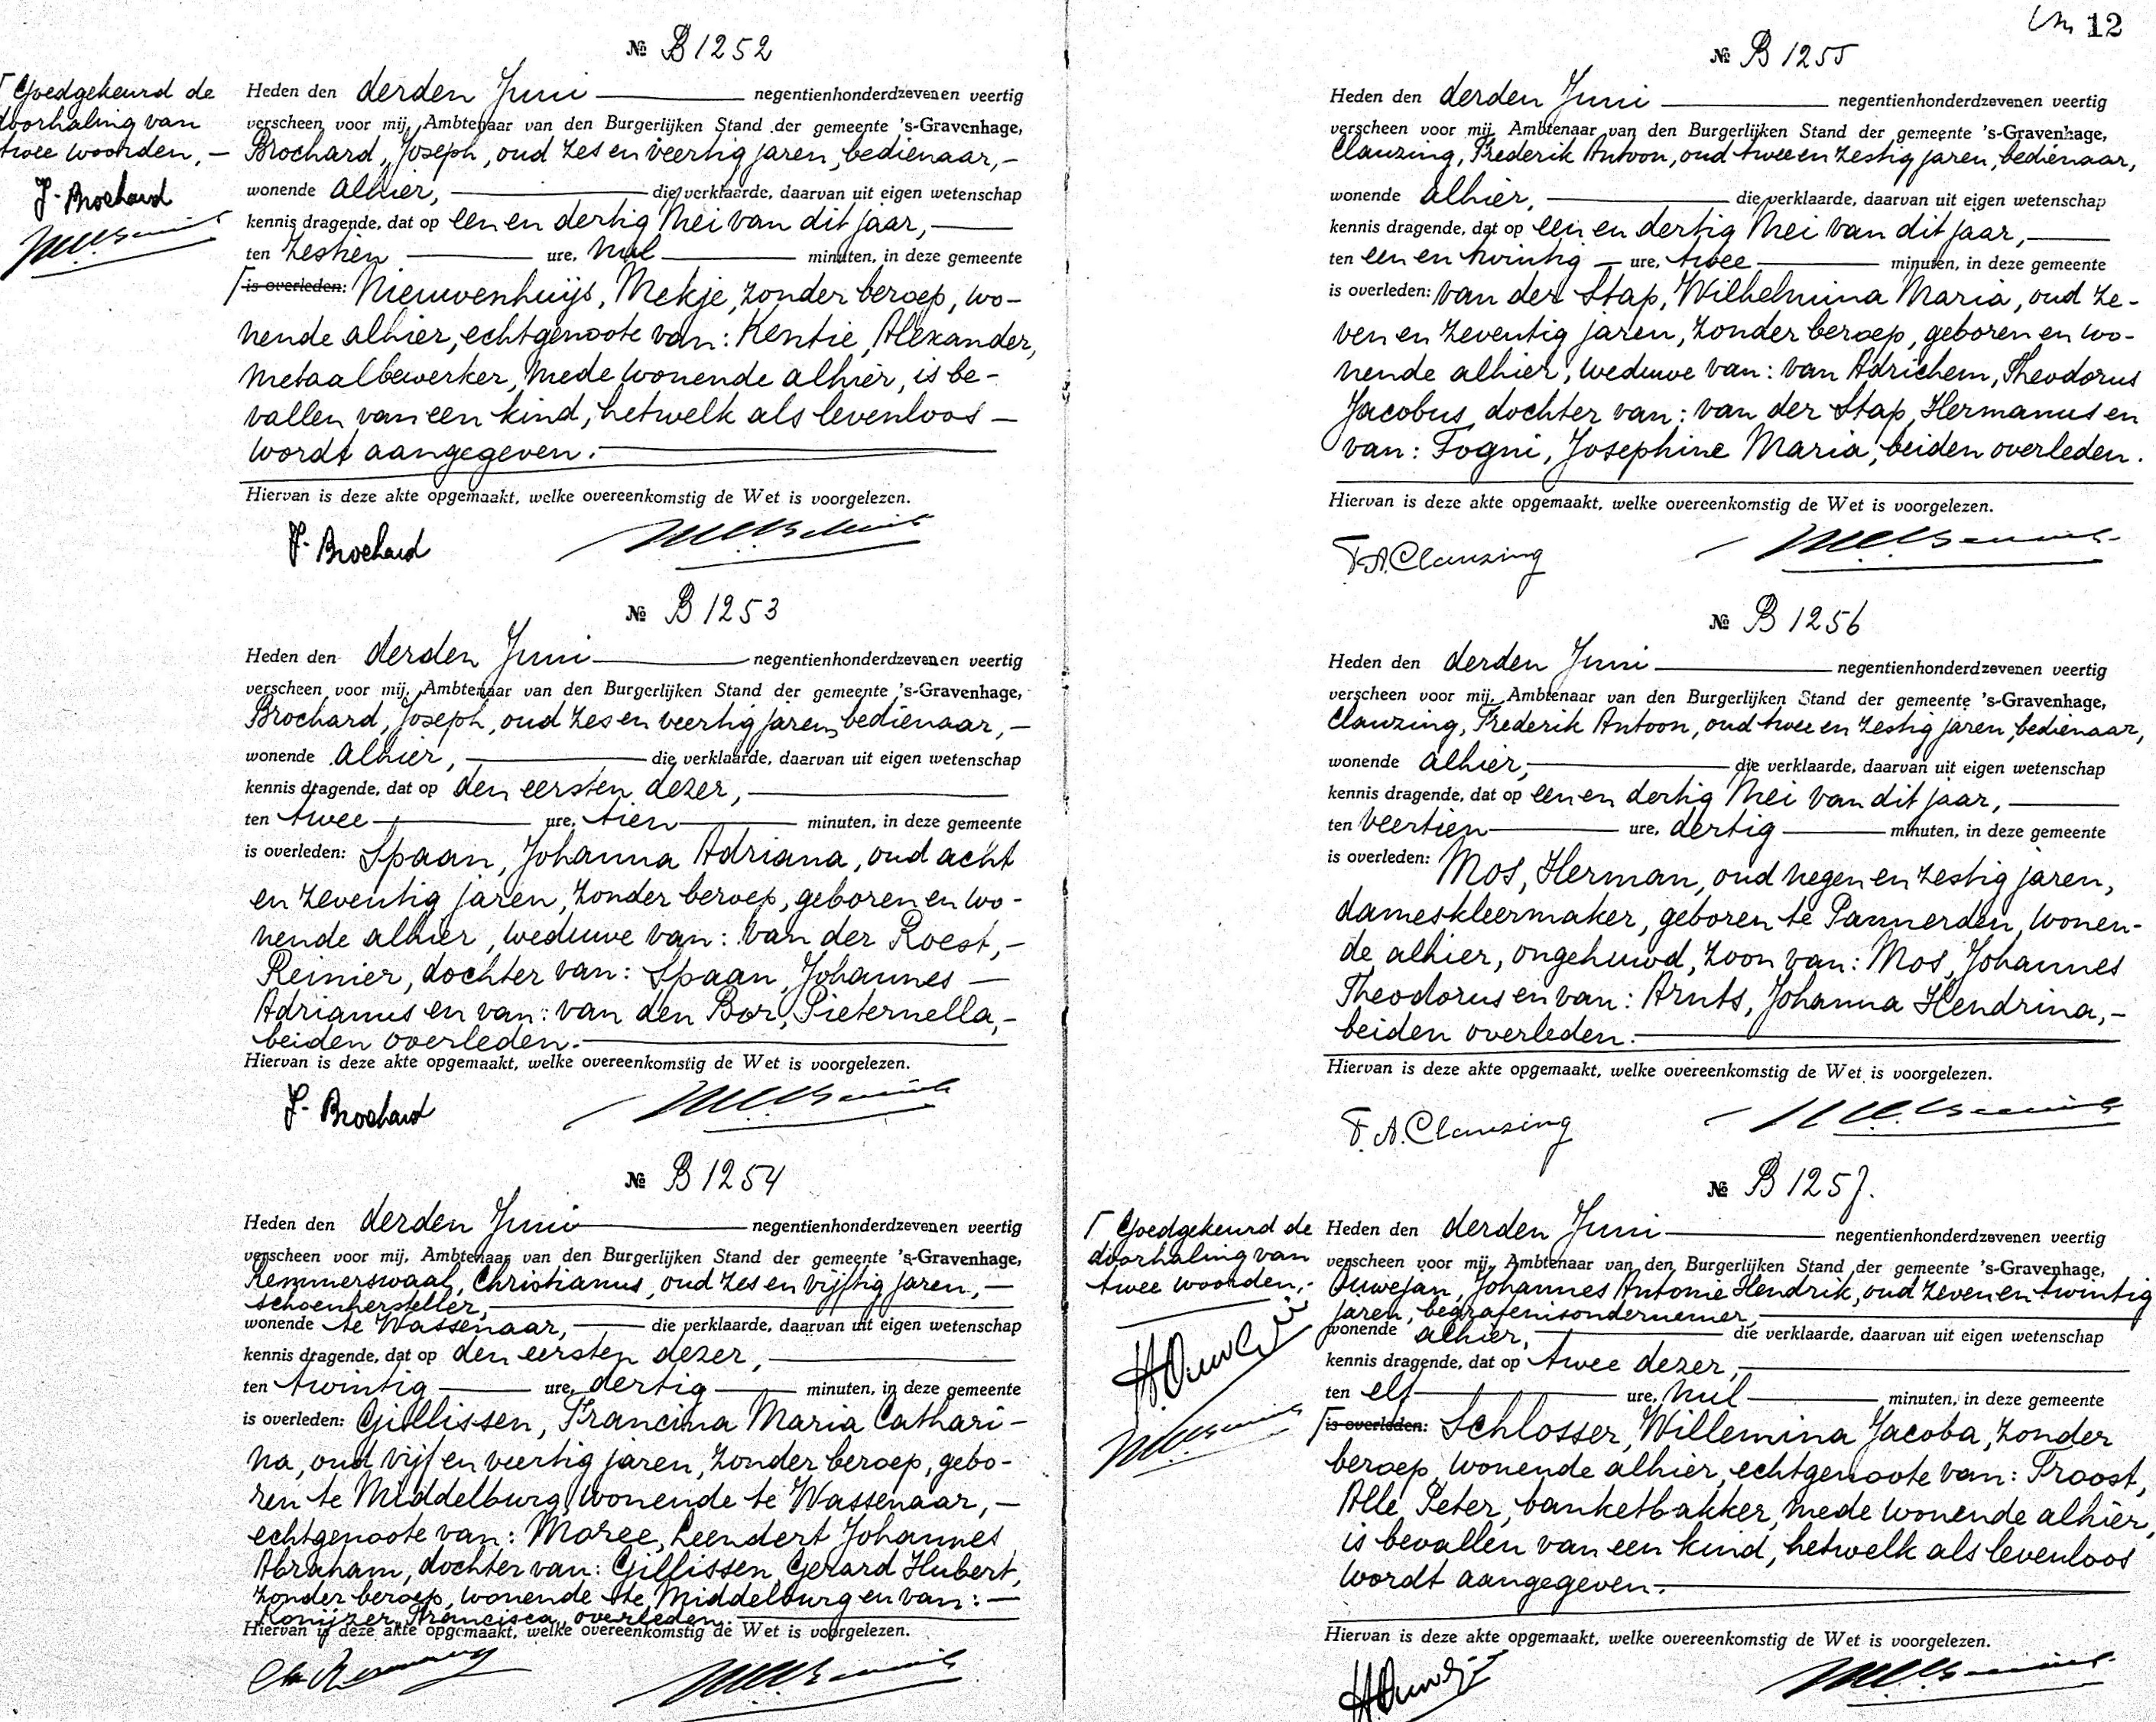 № B 1252
Γ Goedgekeurd de
doorhaling van
twee woorden, —
J. Brochard
Heden den derden Juni negentienhonderdzevenen veertig
verscheen voor mij, Ambtenaar van den Burgerlijken Stand der gemeente 's-Gravenhage,
Brochard, Joseph, oud zes en veertig jaren, bedienaar, —
wonende alhier, die verklaarde, daarvan uit eigen wetenschap
kennis dragende, dat op een en dertig Mei van dit jaar,
ten zestien ure, nul minuten, in deze gemeente
Γ is overleden: Nieuwenhuijs, Mekje, zonder beroep, wo-
nende alhier, echtgenoote van: Kentie, Alexander,
metaalbewerker, mede wonende alhier, is be-
vallen van een kind, hetwelk als levenloos —
wordt aangegeven.
Hiervan is deze akte opgemaakt, welke overeenkomstig de Wet is voorgelezen.
J. Brochard
№ B 1253
Heden den derden Juni negentienhonderdzevenen veertig
verscheen voor mij, Ambtenaar van den Burgerlijken Stand der gemeente 's-Gravenhage,
Brochard, Joseph, oud zes en veertig jaren, bedienaar, —
wonende alhier, die verklaarde, daarvan uit eigen wetenschap
kennis dragende, dat op den eersten dezer,
ten twee ure, tien minuten, in deze gemeente
is overleden: Spaan, Johanna Adriana, oud acht
en zeventig jaren, zonder beroep, geboren en wo-
nende alhier, weduwe van: van der Roest, —
Reinier, dochter van: Spaan, Johannes —
Adrianus en van: van den Bor, Pieternella, —
beiden overleden.
Hiervan is deze akte opgemaakt, welke overeenkomstig de Wet is voorgelezen.
J. Brochard
№ B 1254
Heden den derden Juni negentienhonderdzevenen veertig
verscheen voor mij, Ambtenaar van den Burgerlijken Stand der gemeente 's-Gravenhage,
Remmerswaal, Christianus, oud zes en vijftig jaren, —
schoenhersteller,
wonende te Wassenaar, die verklaarde, daarvan uit eigen wetenschap
kennis dragende, dat op den eersten dezer,
ten twintig ure, dertig minuten, in deze gemeente
is overleden: Gillissen, Francina Maria Cathari-
na, oud vijf en veertig jaren, zonder beroep, gebo-
ren te Middelburg, wonende te Wassenaar, —
echtgenoote van: Moree, Leendert Johannes
Abraham, dochter van: Gillissen, Gerard Hubert,
zonder beroep, wonende te Middelburg en van: —
Konijzer, Francisca, overleden.
Hiervan is deze akte opgemaakt, welke overeenkomstig de Wet is voorgelezen.
12
№ B 1255
Heden den derden Juni negentienhonderdzevenen veertig
verscheen voor mij, Ambtenaar van den Burgerlijken Stand der gemeente 's-Gravenhage,
Clauzing, Frederik Antoon, oud twee en zestig jaren, bedienaar,
wonende alhier, die verklaarde, daarvan uit eigen wetenschap
kennis dragende, dat op een en dertig Mei van dit jaar,
ten een en twintig ure, twee minuten, in deze gemeente
is overleden: van der Stap, Wilhelmina Maria, oud ze-
ven en zeventig jaren, zonder beroep, geboren en wo-
nende alhier, weduwe van: van Adrichem, Theodorus
Jacobus, dochter van: van der Stap, Hermanus en
van: Fogni, Josephine Maria, beiden overleden.
Hiervan is deze akte opgemaakt, welke overeenkomstig de Wet is voorgelezen.
F.A. Clauzing
№ B 1256
Heden den derden Juni negentienhonderdzevenen veertig
verscheen voor mij, Ambtenaar van den Burgerlijken Stand der gemeente 's-Gravenhage,
Clauzing, Frederik Antoon, oud twee en zestig jaren, bedienaar,
wonende alhier, die verklaarde, daarvan uit eigen wetenschap
kennis dragende, dat op een en dertig Mei van dit jaar,
ten veertien ure, dertig minuten, in deze gemeente
is overleden: Mos, Herman, oud negen en zestig jaren,
dameskleermaker, geboren te Pannerden, wonen-
de alhier, ongehuwd, zoon van: Mos, Johannes
Theodorus en van: Arnts, Johanna Hendrina, —
beiden overleden.
Hiervan is deze akte opgemaakt, welke overeenkomstig de Wet is voorgelezen.
F.A. Clauzing
№ B 1257.
Γ Goedgekeurd de
doorhaling van
twee woorden, —
Heden den derden Juni negentienhonderdzevenen veertig
verscheen voor mij, Ambtenaar van den Burgerlijken Stand der gemeente 's-Gravenhage,
Ouwejan, Johannes Antonie Hendrik, oud zeven en twintig
jaren, begrafenisondernemer,
wonende alhier, die verklaarde, daarvan uit eigen wetenschap
kennis dragende, dat op twee dezer,
ten elf ure, nul minuten, in deze gemeente
Γ is overleden: Schlosser, Willemina Jacoba, zonder
beroep, wonende alhier, echtgenoote van: Troost,
Alle Peter, banketbakker, mede wonende alhier,
is bevallen van een kind, hetwelk als levenloos
wordt aangegeven.
Hiervan is deze akte opgemaakt, welke overeenkomstig de Wet is voorgelezen.